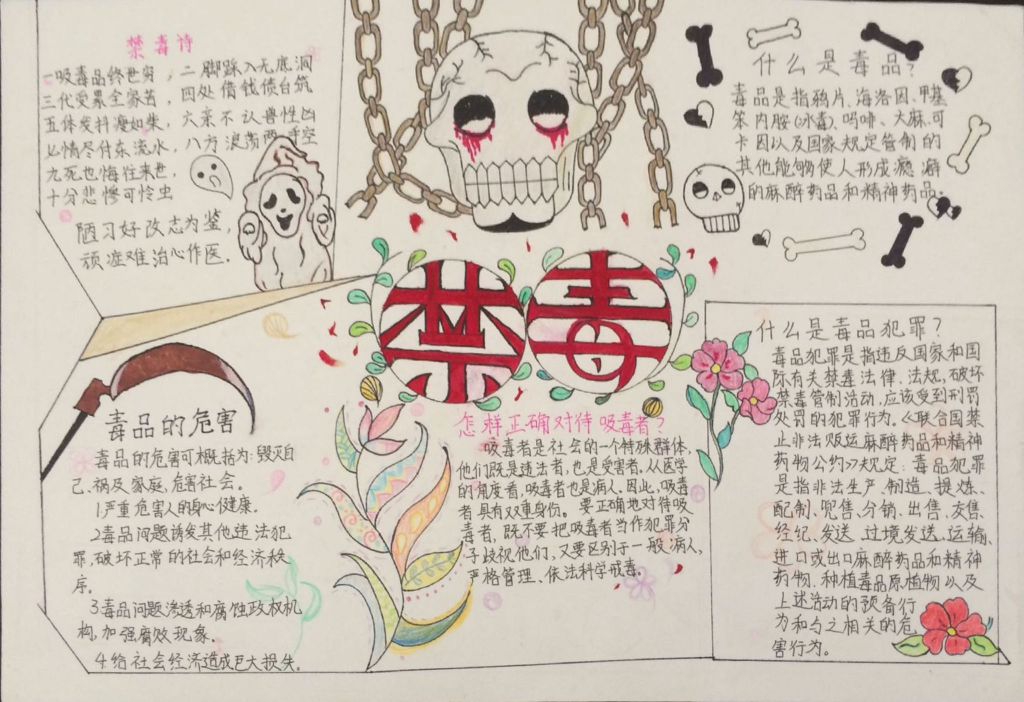 禁毒诗
一吸毒品终世哭，二脚踩入无底洞
三代受累全家苦，四处借钱债台筑
五体发抖瘦如柴，六亲不认兽性凶
七情尽付东流水，八方浪荡两手空
九死也悔往来世，
十分悲惨可怜虫
陋习好改志为鉴，
顽症难治心作医．
什么是毒品？
毒品是指鸦片、海洛因、甲基
苯丙胺(冰毒)、吗啡、大麻、可
卡因以及国家规定管制的
其他能够使人形成瘾癖
的麻醉药品和精神药品。
禁毒
毒品的危害
毒品的危害可概括为：毁灭自
己、祸及家庭，危害社会。
1严重危害人的身心健康．
2毒品问题诱发其他违法犯
罪，破坏正常的社会和经济秩
序。
3毒品问题渗透和腐蚀政权机
构，加强腐败现象．
4给社会经济造成巨大损失．
怎样正确对待吸毒者？
吸毒者是社会的一个特殊群体，
他们既是违法者，也是受害者，从医学
的角度看，吸毒者也是病人。因此，吸毒
者具有双重身份。要正确地对待吸
毒者，既不要把吸毒者当作犯罪分
子歧视他们，又要区别于一般病人，
严格管理、依法科学戒毒。
什么是毒品犯罪？
毒品犯罪是指违反国家和国
际有关禁毒法律、法规，破坏
禁毒管制活动，应该受到刑罚
处罚的犯罪行为。《联合国禁
止非法贩运麻醉药品和精神
药物公约》规定：毒品犯罪
是指非法生产、制造、提炼、
配制、兜售、分销、出售、交售、
经纪、发送、过境发送、运输、
进口或出口麻醉药品和精神
药物、种植毒品原植物以及
上述活动的预备行
为和与之相关的危
害行为。